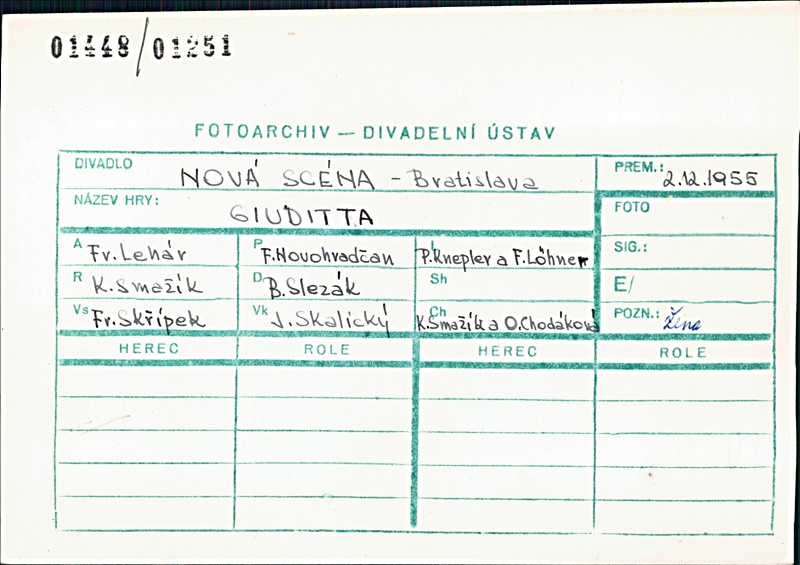 01448/01251
FOTOARCHIV — DIVADELNÍ ÚSTAV
DIVADLO NOVÁ SCÉNA - Bratislava PREM.: 2.12.1955
NÁZEV HRY: GIUDITTA FOTO
A Fr. Lehár P F. Novohradčan L P. Knepler a F. Löhner SIG.:
R K. Smažík D B. Slezák Sh E/
Vs Fr. Skřípek Vk J. Skalický Ch K. Smažík a O. Chodáková POZN.: Žena
HEREC ROLE HEREC ROLE